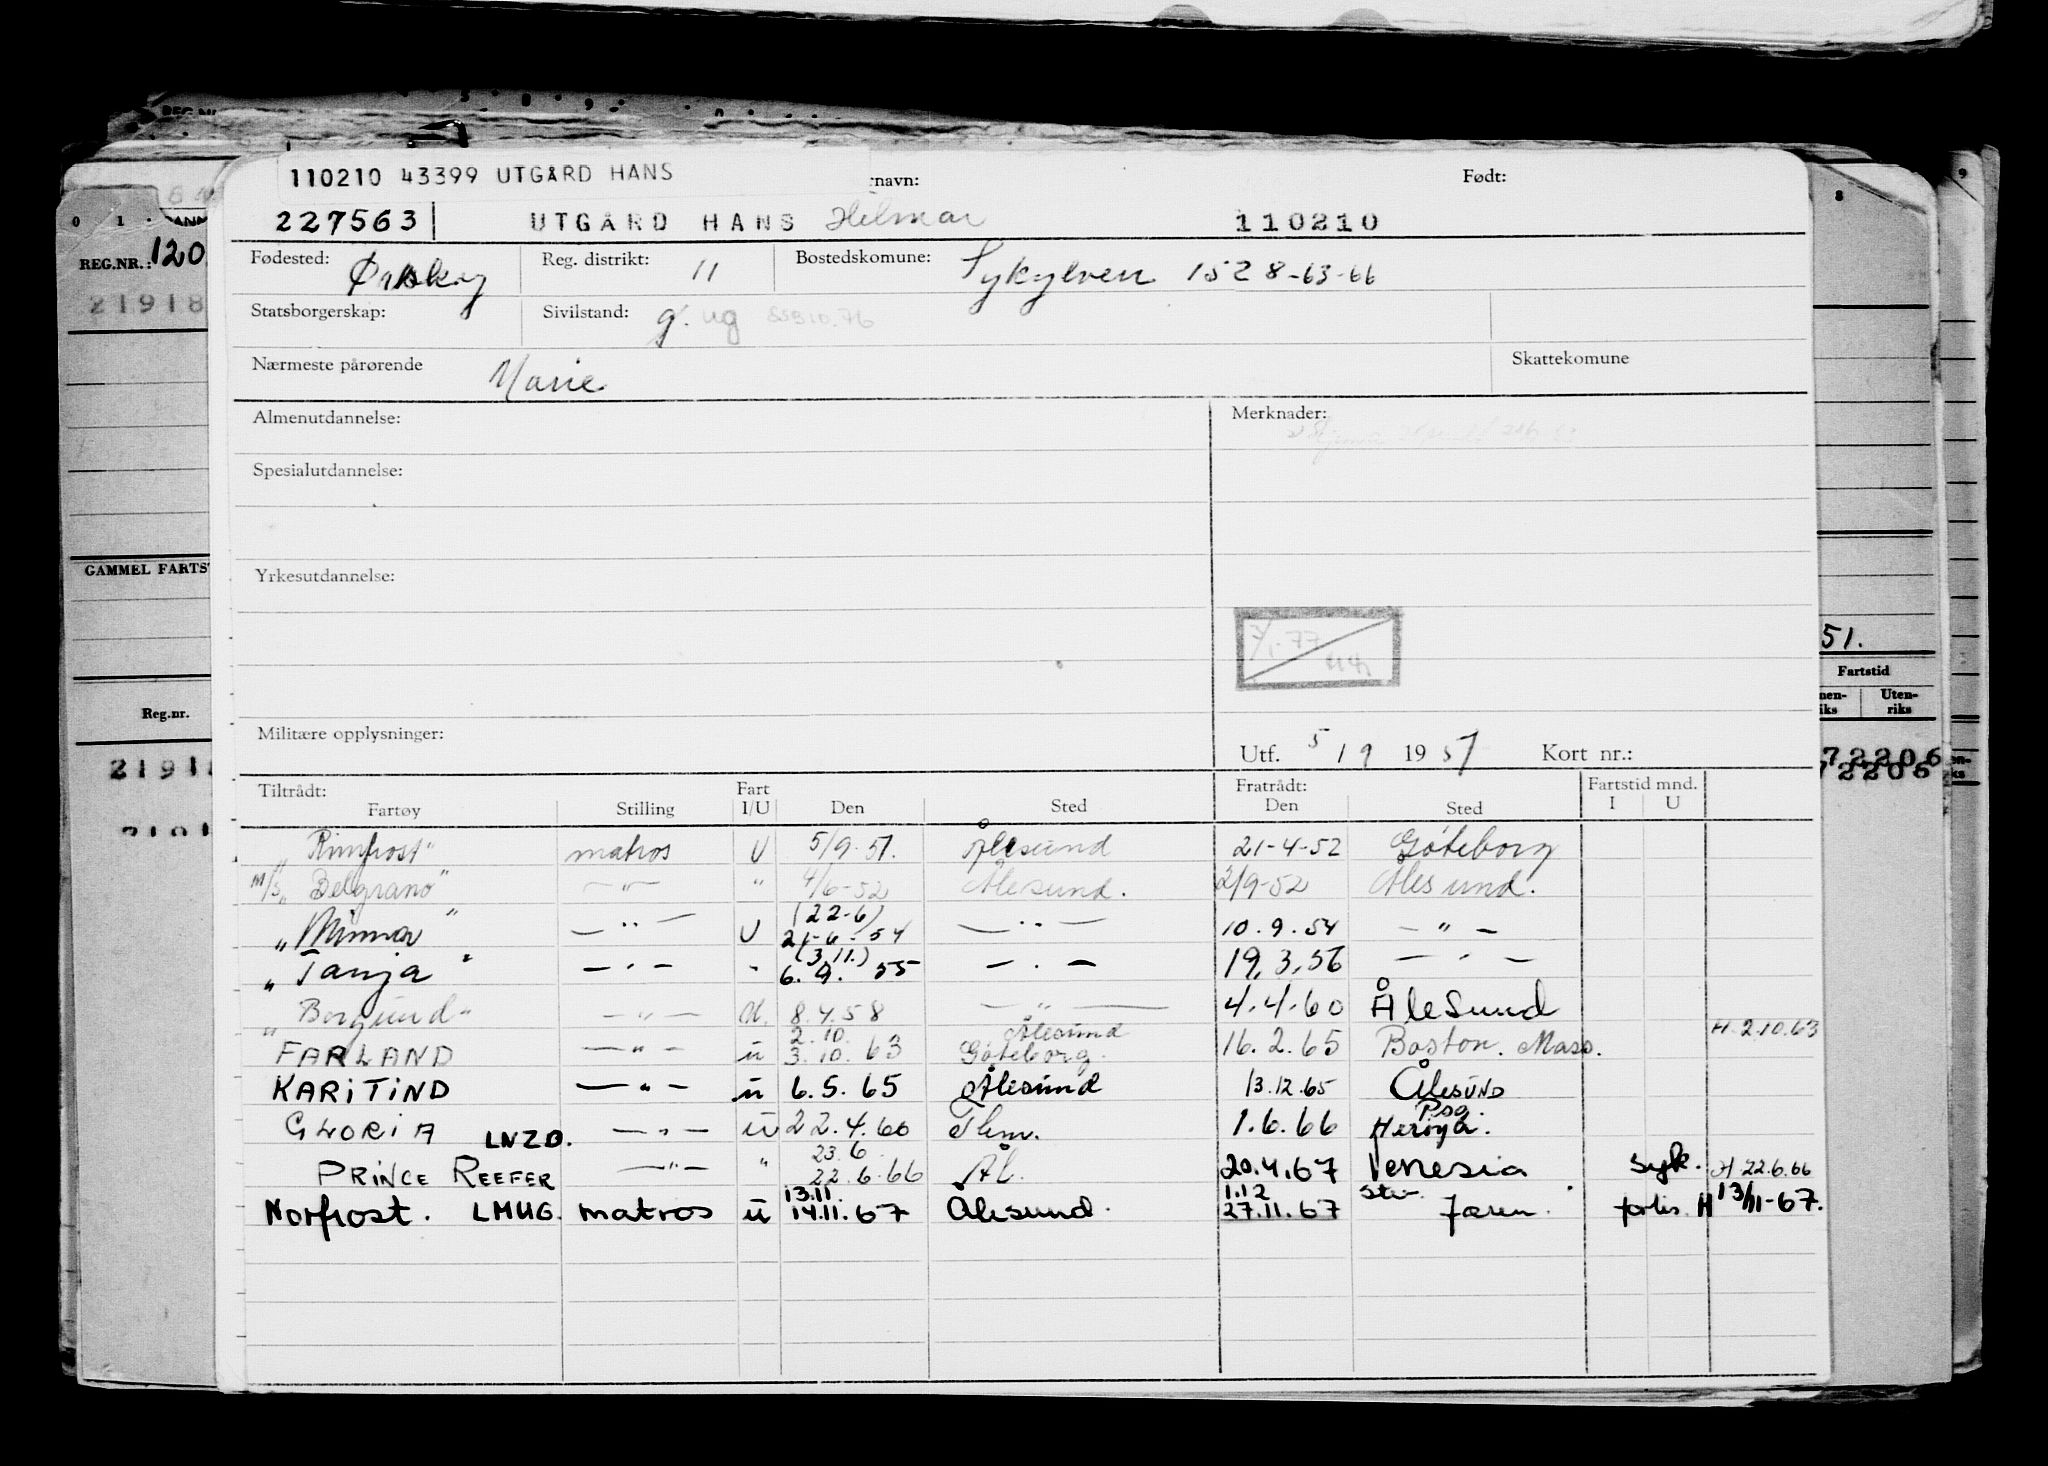 110210 43399 UTGÅRD HANS
rnavn: Født:
227563 UTGÅRD HANS Helmar 110210
Fødested: Ørskog Reg. distrikt: 11 Bostedskomune: Sykylven 1528-63-66
Statsborgerskap: Sivilstand: g. ug
Nærmeste pårørende Marie Skattekomune
Almenutdannelse: Merknader:
Spesialutdannelse:
Yrkesutdannelse:
Militære opplysninger: Utf. 5/9 1951 Kort nr.:
Tiltrådt: Fart Fratrådt: Fartstid mnd.
Fartøy Stilling I/U Den Sted Den Sted I U
"Rimfrost" matros U 5/9-51. Ålesund 21-4-52 Göteborg
M/S "Belgrano" —"— " 4/6-52 Ålesund. 2/9-52 Ålesund.
(22-6)
"Minna" —"— U 21-6-54 —"— 10.9.54 —"—
(3.11.)
"Tanja" —"— " 6.9.55 —"— 19.3.56 —"—
"Borgund" —"— U. 8.4.58 —"— 4.4.60 Ålesund
2.10. Ålesund H 2.10.63
FARLAND —"— u 3.10.63 Göteborg. 16.2.65 Boston. Mass.
KARITIND —"— u 6.5.65 Ålesund 13.12.65 Ålesund
Psg.
GLORIA LNZB. —"— u 22.4.66 Thm. 1.6.66 Herøya.
23.6
PRINCE REEFER —"— " 22.6.66 Ål. 20.4.67 Venesia syk. H 22.6.66
13.11. 1.12 Stv.
Norfrost. LMUG. matros u 14.11.67 Ålesund. 27.11.67 Jæren. forlis. H 13/11-67.
REG.NR.: 120
21918
GAMMEL FARTS
Reg.nr.
51.
Fartstid
Uten-
riks
72206
72206